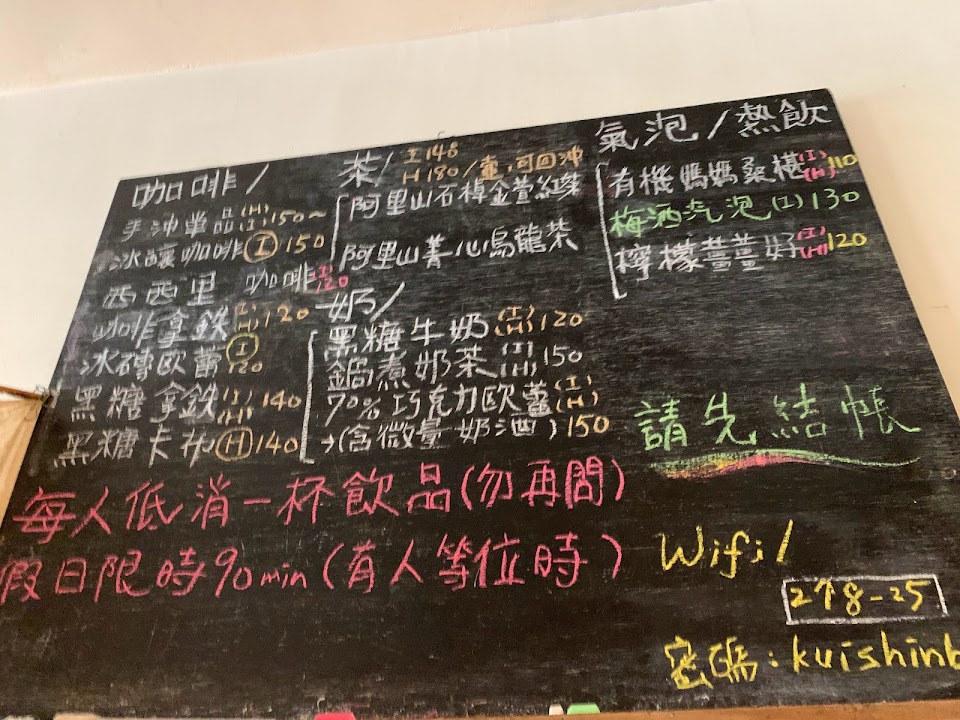 咖啡/
手沖單品(H)(I)150~
冰釀咖啡(I)150
西西里咖啡(I)120
咖啡拿鐵(I)(H)120
冰磚歐蕾(I)120
黑糖拿鐵(I)(H)140
黑糖卡布(H)140
茶/ I 148
H 180/壺,可回沖
阿里山石棹金萱紅茶
阿里山菁心烏龍茶
奶/
黑糖牛奶(I)(H)120
鍋煮奶茶(I)(H)150
70%巧克力歐蕾(I)(H)
→(含微量奶酒)150
氣泡/熱飲
有機媽媽桑椹(I)(H)110
梅酒汽泡(I)130
檸檬薑薑好(I)(H)120
請先結帳
每人低消一杯飲品(勿再問)
假日限時90min(有人等位時)
Wifi/
278-25
密碼:kuishinb